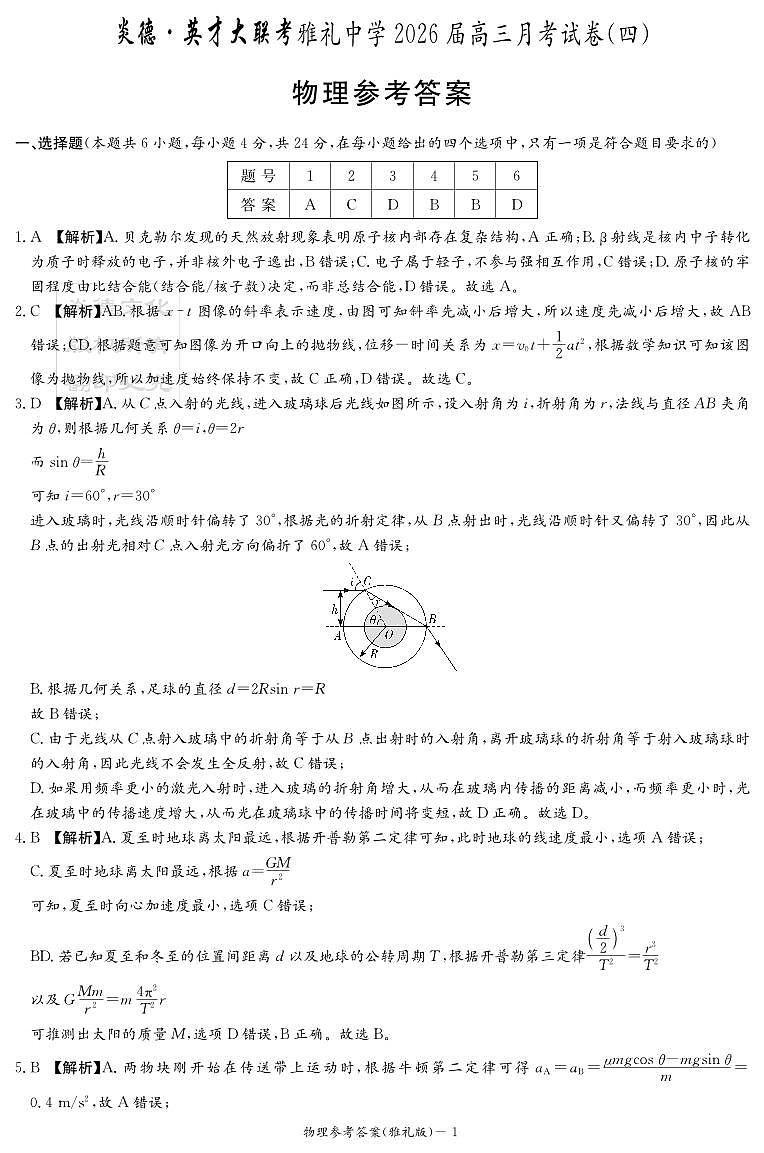 炎德·英才大联考雅礼中学2026届高三月考试卷(四)
物理参考答案
一、选择题(本题共6小题,每小题4分,共24分,在每小题给出的四个选项中,只有一项是符合题目要求的)
题号 1 2 3 4 5 6
答案 A C D B B D
1. A 【解析】A. 贝克勒尔发现的天然放射现象表明原子核内部存在复杂结构,A正确;B. β射线是核内中子转化
为质子时释放的电子,并非核外电子逸出,B错误;C. 电子属于轻子,不参与强相互作用,C错误;D. 原子核的牢
固程度由比结合能(结合能/核子数)决定,而非总结合能,D错误。故选A。
2. C 【解析】AB. 根据x-t图像的斜率表示速度,由图可知斜率先减小后增大,所以速度先减小后增大,故AB
错误;CD. 根据题意可知图像为开口向上的抛物线,位移一时间关系为x=v₀t+1/2at²,根据数学知识可知该图
像为抛物线,所以加速度始终保持不变,故C正确,D错误。故选C。
3. D 【解析】A. 从C点入射的光线,进入玻璃球后光线如图所示,设入射角为i,折射角为r,法线与直径AB夹角
为θ,则根据几何关系θ=i,θ=2r
而 sin θ=h/R
可知i=60°,r=30°
进入玻璃时,光线沿顺时针偏转了30°,根据光的折射定律,从B点射出时,光线沿顺时针又偏转了30°,因此从
B点的出射光相对C点入射光方向偏折了60°,故A错误;
i C
h r
θ B
A O
R
B. 根据几何关系,足球的直径d=2Rsin r=R
故B错误;
C. 由于光线从C点射入玻璃中的折射角等于从B点出射时的入射角,离开玻璃球的折射角等于射入玻璃球时
的入射角,因此光线不会发生全反射,故C错误;
D. 如果用频率更小的激光入射时,进入玻璃的折射角增大,从而在玻璃内传播的距离减小,而频率更小时,光
在玻璃中的传播速度增大,从而光在玻璃球中的传播时间将变短,故D正确。故选D。
4. B 【解析】A. 夏至时地球离太阳最远,根据开普勒第二定律可知,此时地球的线速度最小,选项A错误;
C. 夏至时地球离太阳最远,根据a=GM/r²
可知,夏至时向心加速度最小,选项C错误;
BD. 若已知夏至和冬至的位置间距离d以及地球的公转周期T,根据开普勒第三定律(d/2)³/T²=r³/T²
以及GMm/r²=m4π²/T²r
可推测出太阳的质量M,选项D错误,B正确。故选B。
5. B 【解析】A. 两物块刚开始在传送带上运动时,根据牛顿第二定律可得aA=aB=μmgcos θ-mgsin θ/m=
0.4 m/s²,故A错误;
物理参考答案(雅礼版)-1